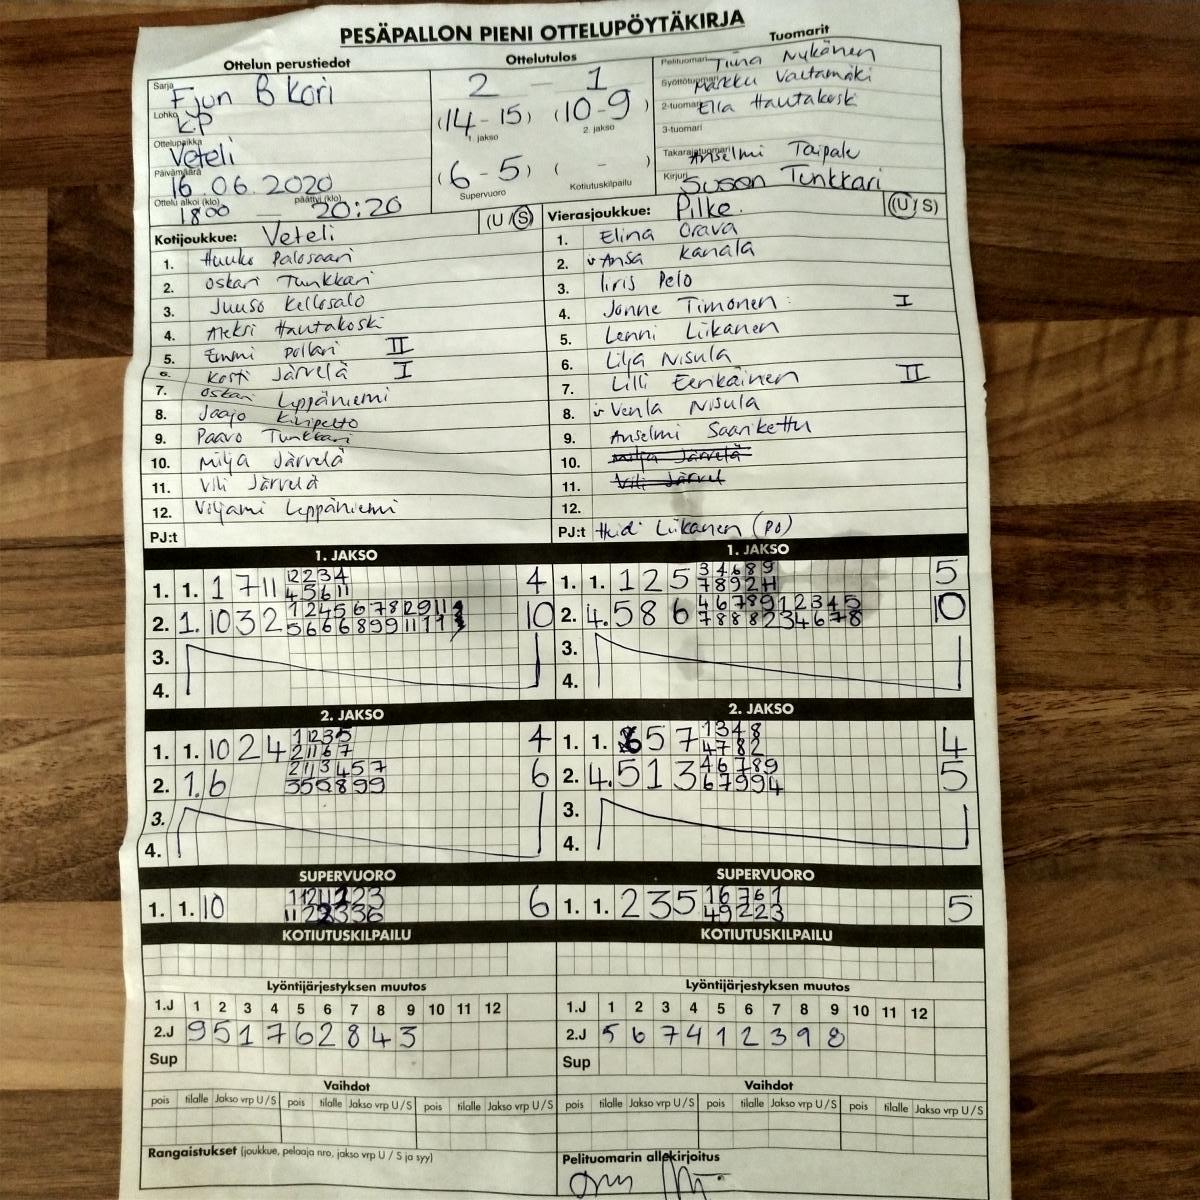 PESÄPALLON PIENI OTTELUPÖYTÄKIRJA
Ottelun perustiedot
Sarja Fjun B Kori
Lohko KP
Ottelupaikka Veteli
Päivämäärä 16.06.2020
Ottelu alkoi (klo) 18:00 — päättyi (klo) 20:20
Ottelutulos
2 - 1
(14 - 15) (10 - 9)
1. jakso 2. jakso
(6 - 5) ( - )
Supervuoro Kotiutuskilpailu
Tuomarit
Pelituomari Tiina Nykänen
Syöttötuomari Markku Valtamäki
2-tuomari Ella Hautakoski
3-tuomari
Takarajatuomari Anselmi Taipale
Kirjuri Susan Tunkkari
Kotijoukkue: Veteli (U / S)
1. Huuko Palosaari
2. Oskari Tunkkari
3. Juuso Kellosalo
4. Aleksi Hautakoski
5. Emmi Pollari II
6. Kosti Järvelä I
7. Oskari Leppäniemi
8. Jaajo Kivipelto
9. Paavo Tunkkari
10. Milja Järvelä
11. Vili Järvelä
12. Viljami Leppäniemi
PJ:t
Vierasjoukkue: Pilke. (U / S)
1. Elina Orava
2. v Ansa Kanala
3. Iiris Pelo
4. Jonne Timonen I
5. Lenni Liikanen
6. Lilja Nisula
7. Lilli Eenkäinen II
8. v Venla Nisula
9. Anselmi Saarikettu
10. Milja Järvelä
11. Vili Järvel
12.
PJ:t Heidi Liikanen (PO)
1. JAKSO
1. 1. 1 7 11 12234 4
45611
2. 1. 10 3 2 10
3.
4.
1. JAKSO
1. 1. 1 2 5 34689 5
2. 4. 5 8 6 10
3.
4.
2. JAKSO
1. 1. 10 2 4 4
2. 1. 6 6
3.
4.
2. JAKSO
1. 1. 6 5 7 1348 4
4782
2. 4. 5 1 3 46789 5
67994
3.
4.
SUPERVUORO
1. 1. 10 6
SUPERVUORO
1. 1. 2 3 5 16761 5
49223
KOTIUTUSKILPAILU
KOTIUTUSKILPAILU
Lyöntijärjestyksen muutos
1.J 1 2 3 4 5 6 7 8 9 10 11 12
2.J 9 5 1 7 6 2 8 4 3
Sup
Lyöntijärjestyksen muutos
1.J 1 2 3 4 5 6 7 8 9 10 11 12
2.J 5 6 7 4 1 2 3 9 8
Sup
Vaihdot
pois tilalle Jakso vrp U / S pois tilalle Jakso vrp U / S pois tilalle Jakso vrp U / S
Vaihdot
pois tilalle Jakso vrp U / S pois tilalle Jakso vrp U / S pois tilalle Jakso vrp U / S
Rangaistukset (joukkue, pelaaja nro, jakso vrp U / S ja syy)
Pelituomarin allekirjoitus